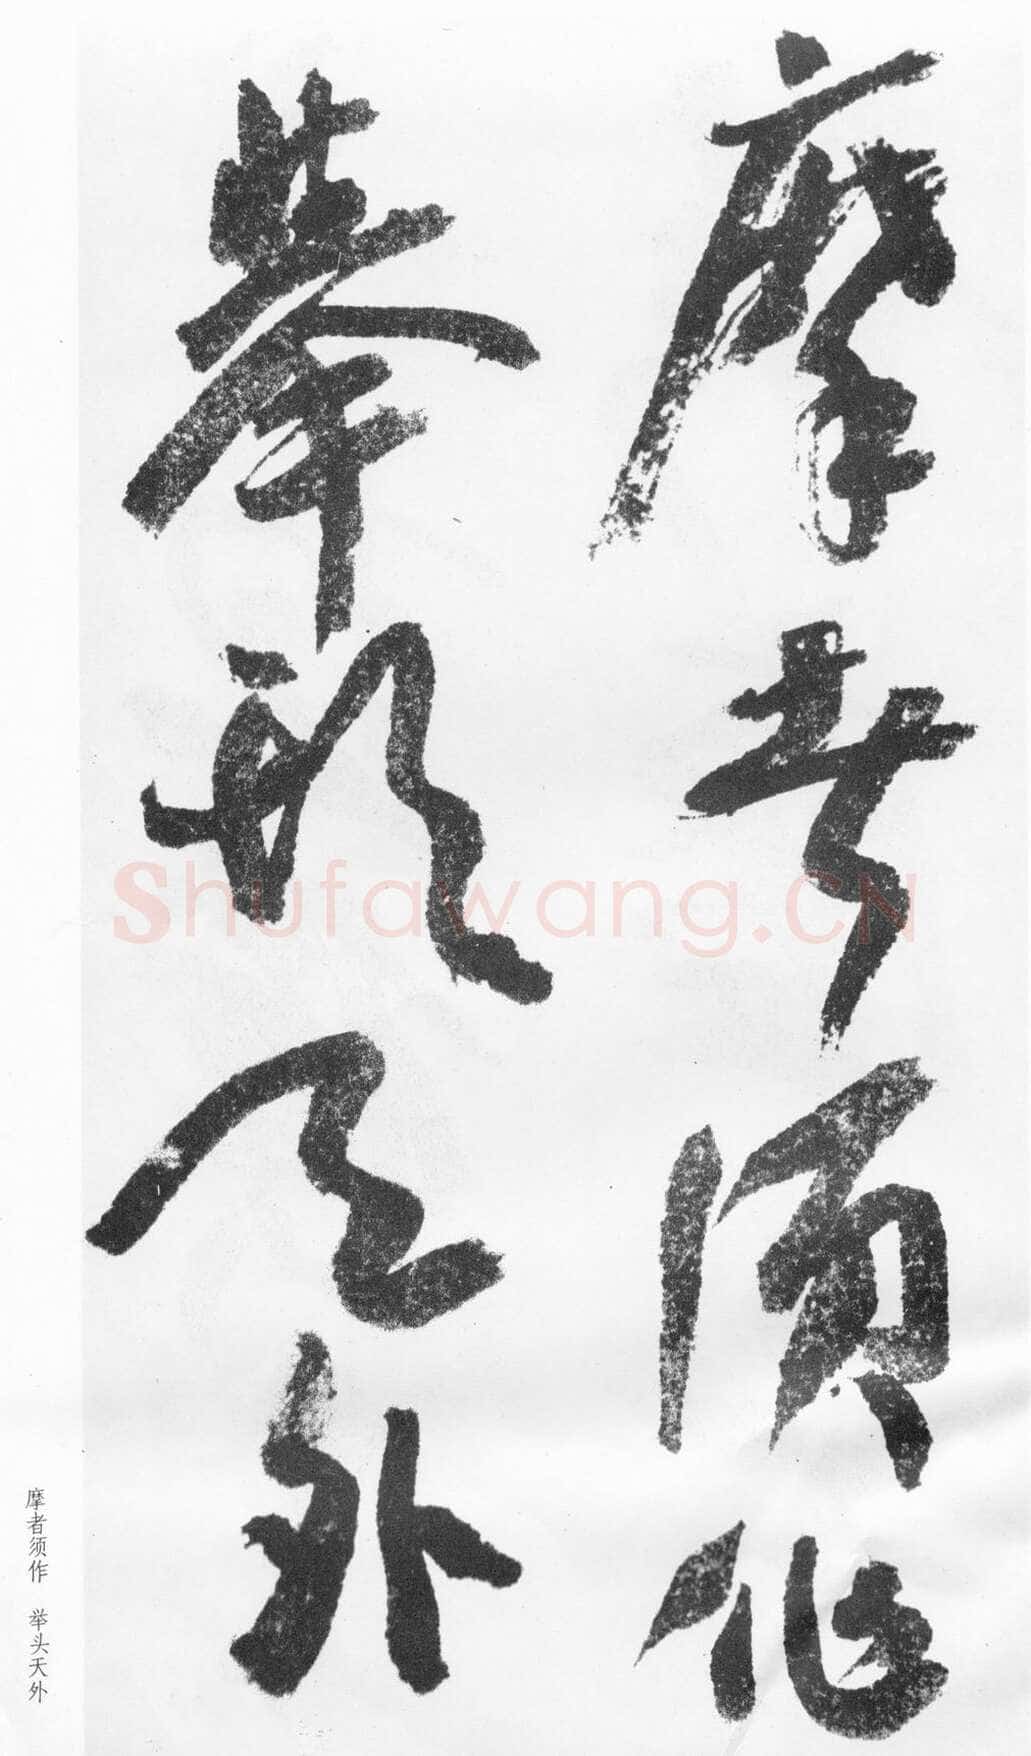 摩者須作
舉頭天外
摩者须作 举头天外
Shufawang.CN